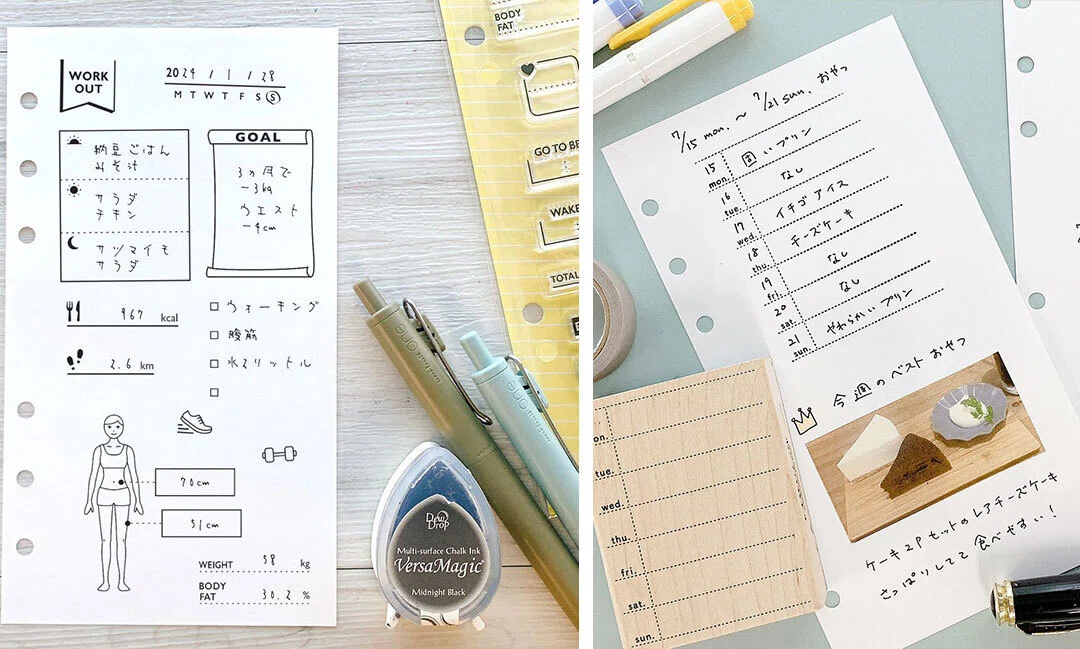 WORK
OUT
2024 / 1 / 28
M T W T F S S
納豆ごはん
みそ汁
サラダ
チキン
サツマイモ
サラダ
GOAL
3ヵ月で
-3kg
ウエスト
-4cm
967 kcal
2.6 km
ウォーキング
腹筋
水2リットル
70cm
51cm
WEIGHT 58 kg
BODY
FAT 30.2 %
BODY
FAT
GO TO BE
WAKE
TOTAL
uni-ball one
uni-ball one
Dew
Drop
Multi-surface Chalk Ink
VersaMagic
Midnight Black
7/15 mon. ~ 7/21 sun. おやつ
15 mon. 固いプリン
16 tue. なし
17 wed. イチゴアイス
18 thu. チーズケーキ
19 fri. なし
20 sat. なし
21 sun. やわらかいプリン
今週のベストおやつ
ケーキ2Pセットのレアチーズケーキ
さっぱりしてて食べやすい!
mon.
tue.
wed.
thu.
fri.
sat.
sun.